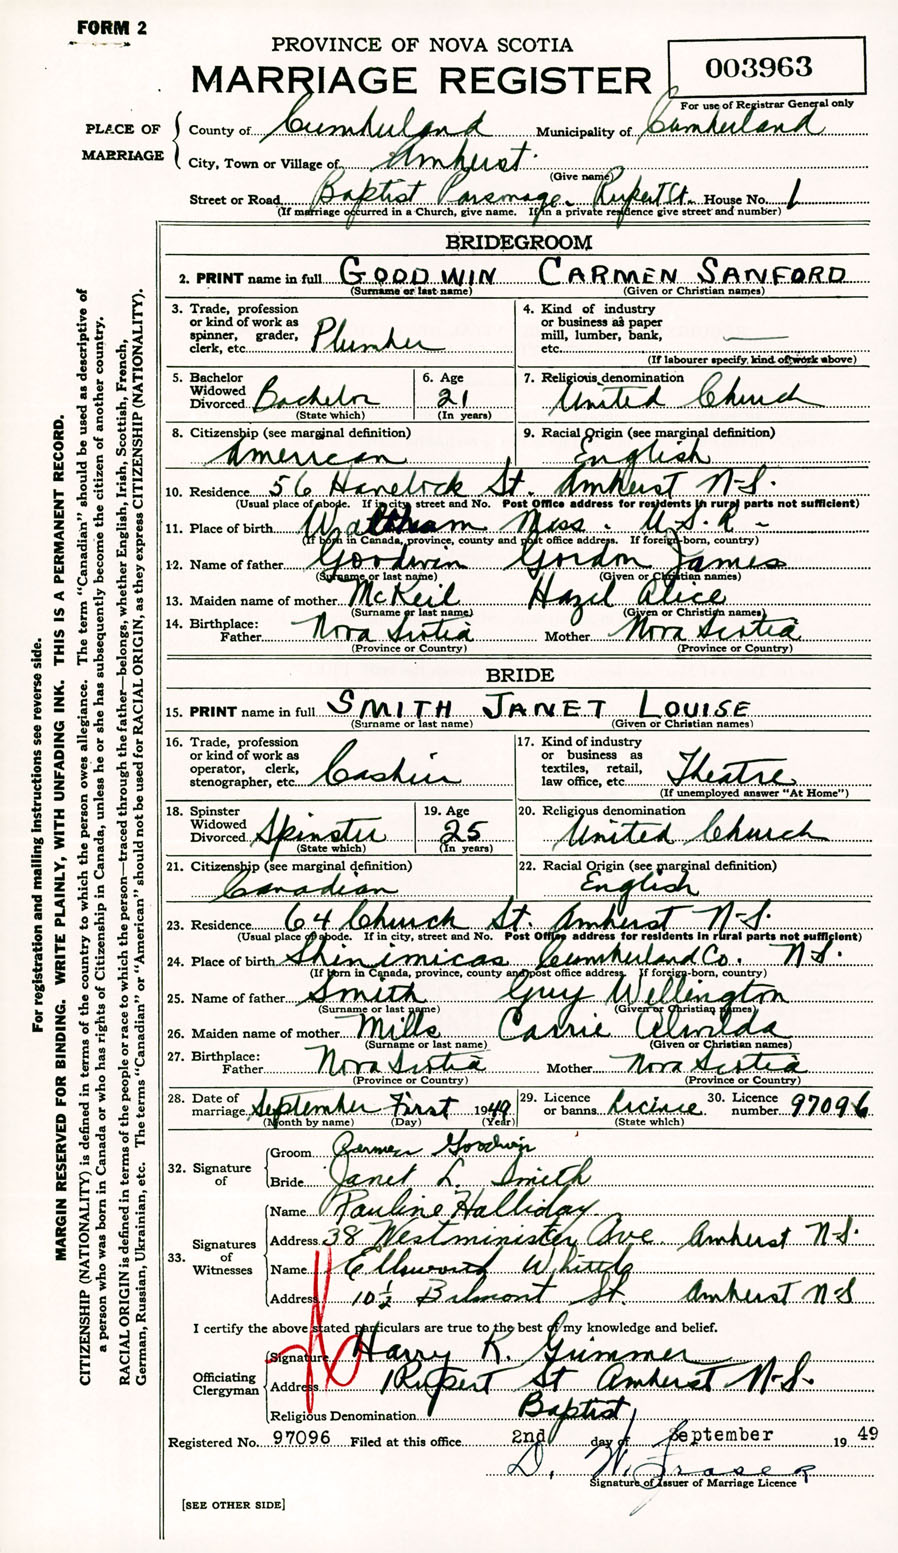 FORM 2
PROVINCE OF NOVA SCOTIA
MARRIAGE REGISTER
003963
For use of Registrar General only
PLACE OF MARRIAGE
County of Cumberland Municipality of Cumberland
City, Town or Village of Amherst
(Give name)
Street or Road Baptist Parsonage. Rupert St. House No. 1
(If marriage occurred in a Church, give name. If in a private residence give street and number)
BRIDEGROOM
2. PRINT name in full GOODWIN CARMEN SANFORD
(Surname or last name) (Given or Christian names)
3. Trade, profession or kind of work as spinner, grader, clerk, etc. Plumber
4. Kind of industry or business as paper mill, lumber, bank, etc. —
(If labourer specify kind of work above)
5. Bachelor Widowed Divorced Bachelor
(State which)
6. Age 21
(In years)
7. Religious denomination United Church
8. Citizenship (see marginal definition) American
9. Racial Origin (see marginal definition) English
10. Residence 56 Havelock St. Amherst N-S.
(Usual place of abode. If in city, street and No. Post Office address for residents in rural parts not sufficient)
11. Place of birth Waltham Mass. U.S.A -
(If born in Canada, province, county and post office address. If foreign-born, country)
12. Name of father Goodwin Gordon James
(Surname or last name) (Given or Christian names)
13. Maiden name of mother McKeil Hazel Alice
(Surname or last name) (Given or Christian names)
14. Birthplace: Father Nova Scotia Mother Nova Scotia
(Province or Country) (Province or Country)
BRIDE
15. PRINT name in full SMITH JANET LOUISE
(Surname or last name) (Given or Christian names)
16. Trade, profession or kind of work as operator, clerk, stenographer, etc. Cashier
17. Kind of industry or business as textiles, retail, law office, etc. Theatre
(If unemployed answer "At Home")
18. Spinster Widowed Divorced Spinster
(State which)
19. Age 25
(In years)
20. Religious denomination United Church
21. Citizenship (see marginal definition) Canadian
22. Racial Origin (see marginal definition) English
23. Residence 64 Church St. Amherst N-S.
(Usual place of abode. If in city, street and No. Post Office address for residents in rural parts not sufficient)
24. Place of birth Shinimicas Cumberland Co. N-S.
(If born in Canada, province, county and post office address. If foreign-born, country)
25. Name of father Smith Guy Wellington
(Surname or last name) (Given or Christian names)
26. Maiden name of mother Mills Carrie Alwilda
(Surname or last name) (Given or Christian names)
27. Birthplace: Father Nova Scotia Mother Nova Scotia
(Province or Country) (Province or Country)
28. Date of marriage September First 1949
(Month by name) (Day) (Year)
29. Licence or banns Licence
(State which)
30. Licence number 97096
32. Signature of
Groom Carmen Goodwin
Bride Janet L. Smith
33. Signatures of Witnesses
Name Pauline Halliday
Address 38 Westminister Ave. Amherst N-S.
Name Ellsworth
Address 10½ Belmont St. Amherst N-S
I certify the above stated particulars are true to the best of my knowledge and belief.
Officiating Clergyman
Signature Harry K. Grimmer
Address 1 Rupert St Amherst N-S.
Religious Denomination Baptist
Registered No. 97096 Filed at this office 2nd day of September 1949
D. W. Fraser
Signature of Issuer of Marriage Licence
[SEE OTHER SIDE]
For registration and mailing instructions see reverse side.
MARGIN RESERVED FOR BINDING. WRITE PLAINLY, WITH UNFADING INK. THIS IS A PERMANENT RECORD.
CITIZENSHIP (NATIONALITY) is defined in terms of the country to which the person owes allegiance. The term "Canadian" should be used as descriptive of
a person who was born in Canada or who has rights of Citizenship in Canada, unless he or she has subsequently become the citizen of another country.
RACIAL ORIGIN is defined in terms of the people or race to which the person—traced through the father—belongs, whether English, Irish, Scottish, French,
German, Russian, Ukrainian, etc. The terms "Canadian" or "American" should not be used for RACIAL ORIGIN, as they express CITIZENSHIP (NATIONALITY).